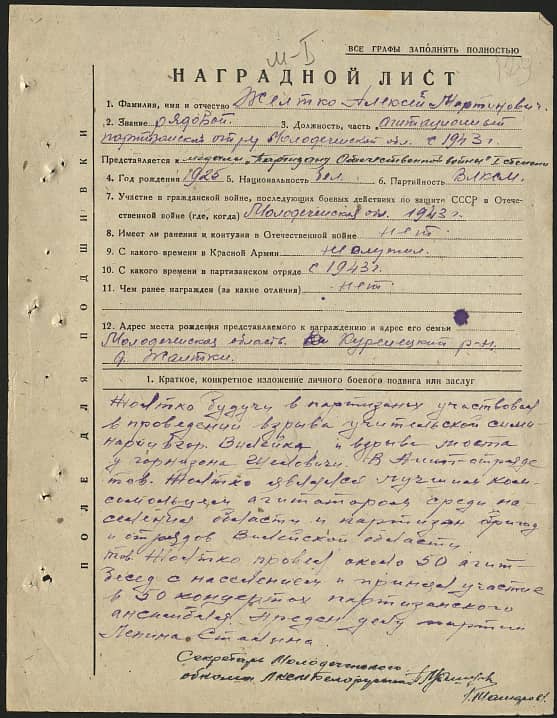 ВСЕ ГРАФЫ ЗАПОЛНЯТЬ ПОЛНОСТЬЮ
М-Б
НАГРАДНОЙ ЛИСТ
1. Фамилия, имя и отчество Желтко Алексей Мартинович
2. Звание рядовой 3. Должность, часть агитационный
партизанский отряд Молодечненской обл. с 1943 г.
Представляется к медали "Партизану Отечественной войны" I степени
4. Год рождения 1925 5. Национальность бел. 6. Партийность ВЛКСМ.
7. Участие в гражданской войне, последующих боевых действиях по защите СССР в Отече-
ственной войне (где, когда) Молодеченская обл. 1943 г.
8. Имеет ли ранения и контузия в Отечественной войне нет
9. С какого времени в Красной Армии не служил.
10. С какого времени в партизанском отряде с 1943 г.
11. Чем ранее награжден (за какие отличия) нет
12. Адрес места рождения представляемого к награждению и адрес его семьи
Молодеченская область Куренецкий р-н
д. Жалтки.
1. Краткое, конкретное изложение личного боевого подвига или заслуг
Жолтко будучи в партизанах участвовал
в проведении взрыва учительской семи-
нарии в гор. Вилейка и взрыва моста
у гарнизона В Агитотряде
тов. Жолтко являлся лучшим ком-
сомольцем агитатором среди на-
селения области и партизан бригад
и отрядов Вилейской области
тов. Жолтко провел около 50 агит-
бесед с населением и принял участие
в 50 концертах партизанского
ансамбля. Предан делу партии
Ленина Сталина.
Секретарь Молодеченского
обкома ЛКСМ Белоруссии
ПОЛЕ ДЛЯ ПОДШИВКИ